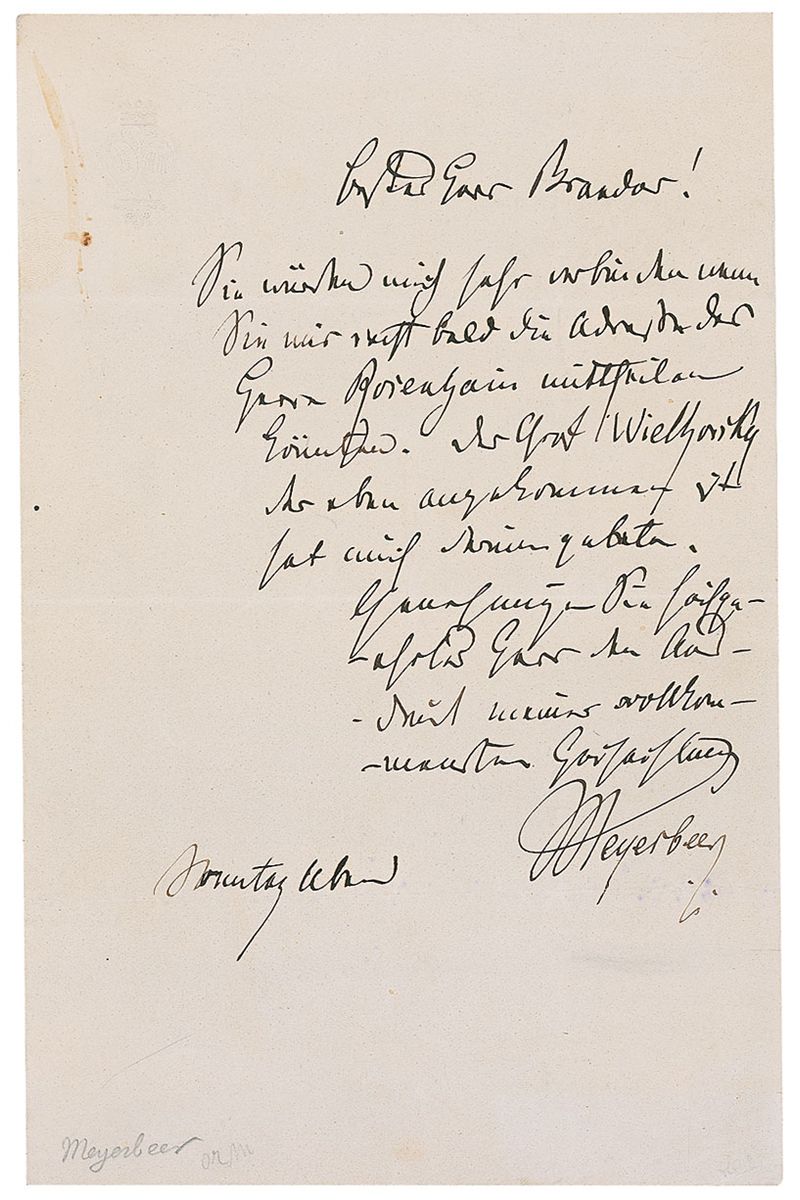 bester Herr Brandus!
Sie würden mich sehr verbinden wenn
Sie mir recht bald die Adresse des
Herrn Rosenhain mittheilen
könnten. Der Graf Wielhorsky
der eben angekommen ist
hat mich darum gebeten.
Genehmigen Sie hochge-
-ehrter Herr den Aus-
-druck meiner vollkom-
-mensten Hochachtung
Meyerbeer
Sonntag Abend
Meyerbeer